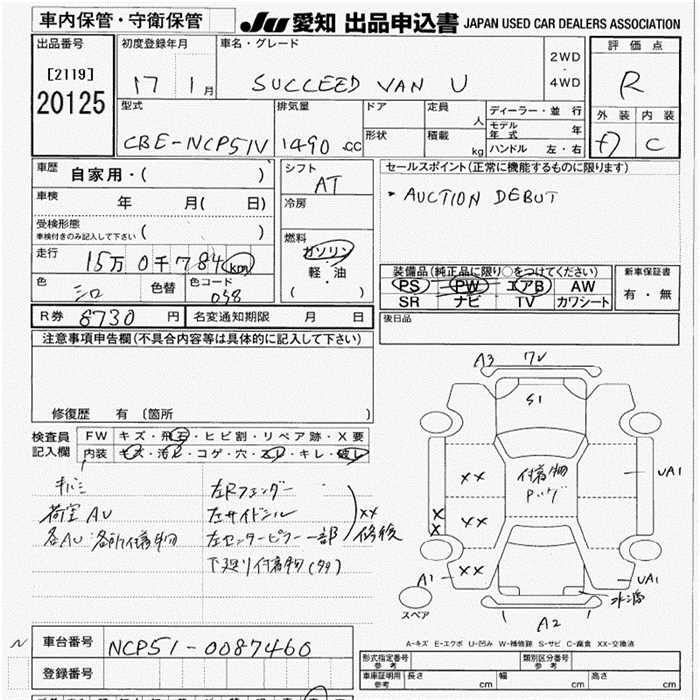 車内保管・守衛保管
JU 愛知 出品申込書 JAPAN USED CAR DEALERS ASSOCIATION
出品番号
[2119]
20125
初度登録年月
17 1月
車名・グレード
SUCCEED VAN U
2WD
・
4WD
評価点
R
外装 内装
C
型式
CBE-NCP51V
排気量
1490.CC
ドア
形状
定員 人
積載 kg
ディーラー・並行
モデル年式 年
ハンドル 左・右
車歴
自家用・( )
車検 年 月( 日)
受検形態
車検付きのみ記入して下さい ( )
走行
15万0千784km
色
シロ
色替
色コード
058
シフト
AT
冷房
燃料
ガソリン
軽・油
( )
セールスポイント(正常に機能するものに限ります)
AUCTION DEBUT
装備品(純正品に限り○をつけてください)
PS PW エアB AW
SR ナビ TV カワシート
新車保証書
有・無
R券 8730 円
名変通知期限 月 日
後日品
注意事項申告欄(不具合内容等は具体的に記入して下さい)
修復歴 有(箇所 )
検査員記入欄
FW キズ・飛石・ヒビ割・リペア跡・X要
内装 キズ・汚れ・コゲ・穴・スレ・キレ・破レ
キバミ
荷室AU
各AU・各所付着物
左Rフェンダー
左サイドシル
左センターピラー一部
XX
修後
下廻り付着物(タタ)
A3 7V
S1
XX
XX
XX
X
X
付着物
Pッグ
UA1
A1
UA1
A2
スペア
A-キズ E-エクボ U-凹み W-補修跡 S-サビ C-腐食 XX-交換済
N
車台番号
NCP51-0087460
登録番号
形式指定番号
参考
類別区分番号
参考
車庫証明用
参考
長さ cm 幅 cm 高さ cm